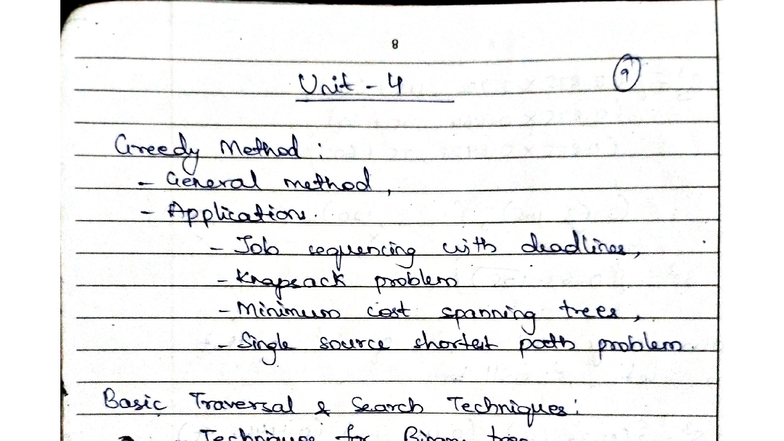 8
Unit - 4
9
Greedy Method :
- General method,
- Applications.
- Job sequencing with deadlines,
- Knapsack problem
- Minimum cost spanning trees,
- Single source shortest path problem.
Basic Traversal & Search Techniques:
- Techniques for Binary tree